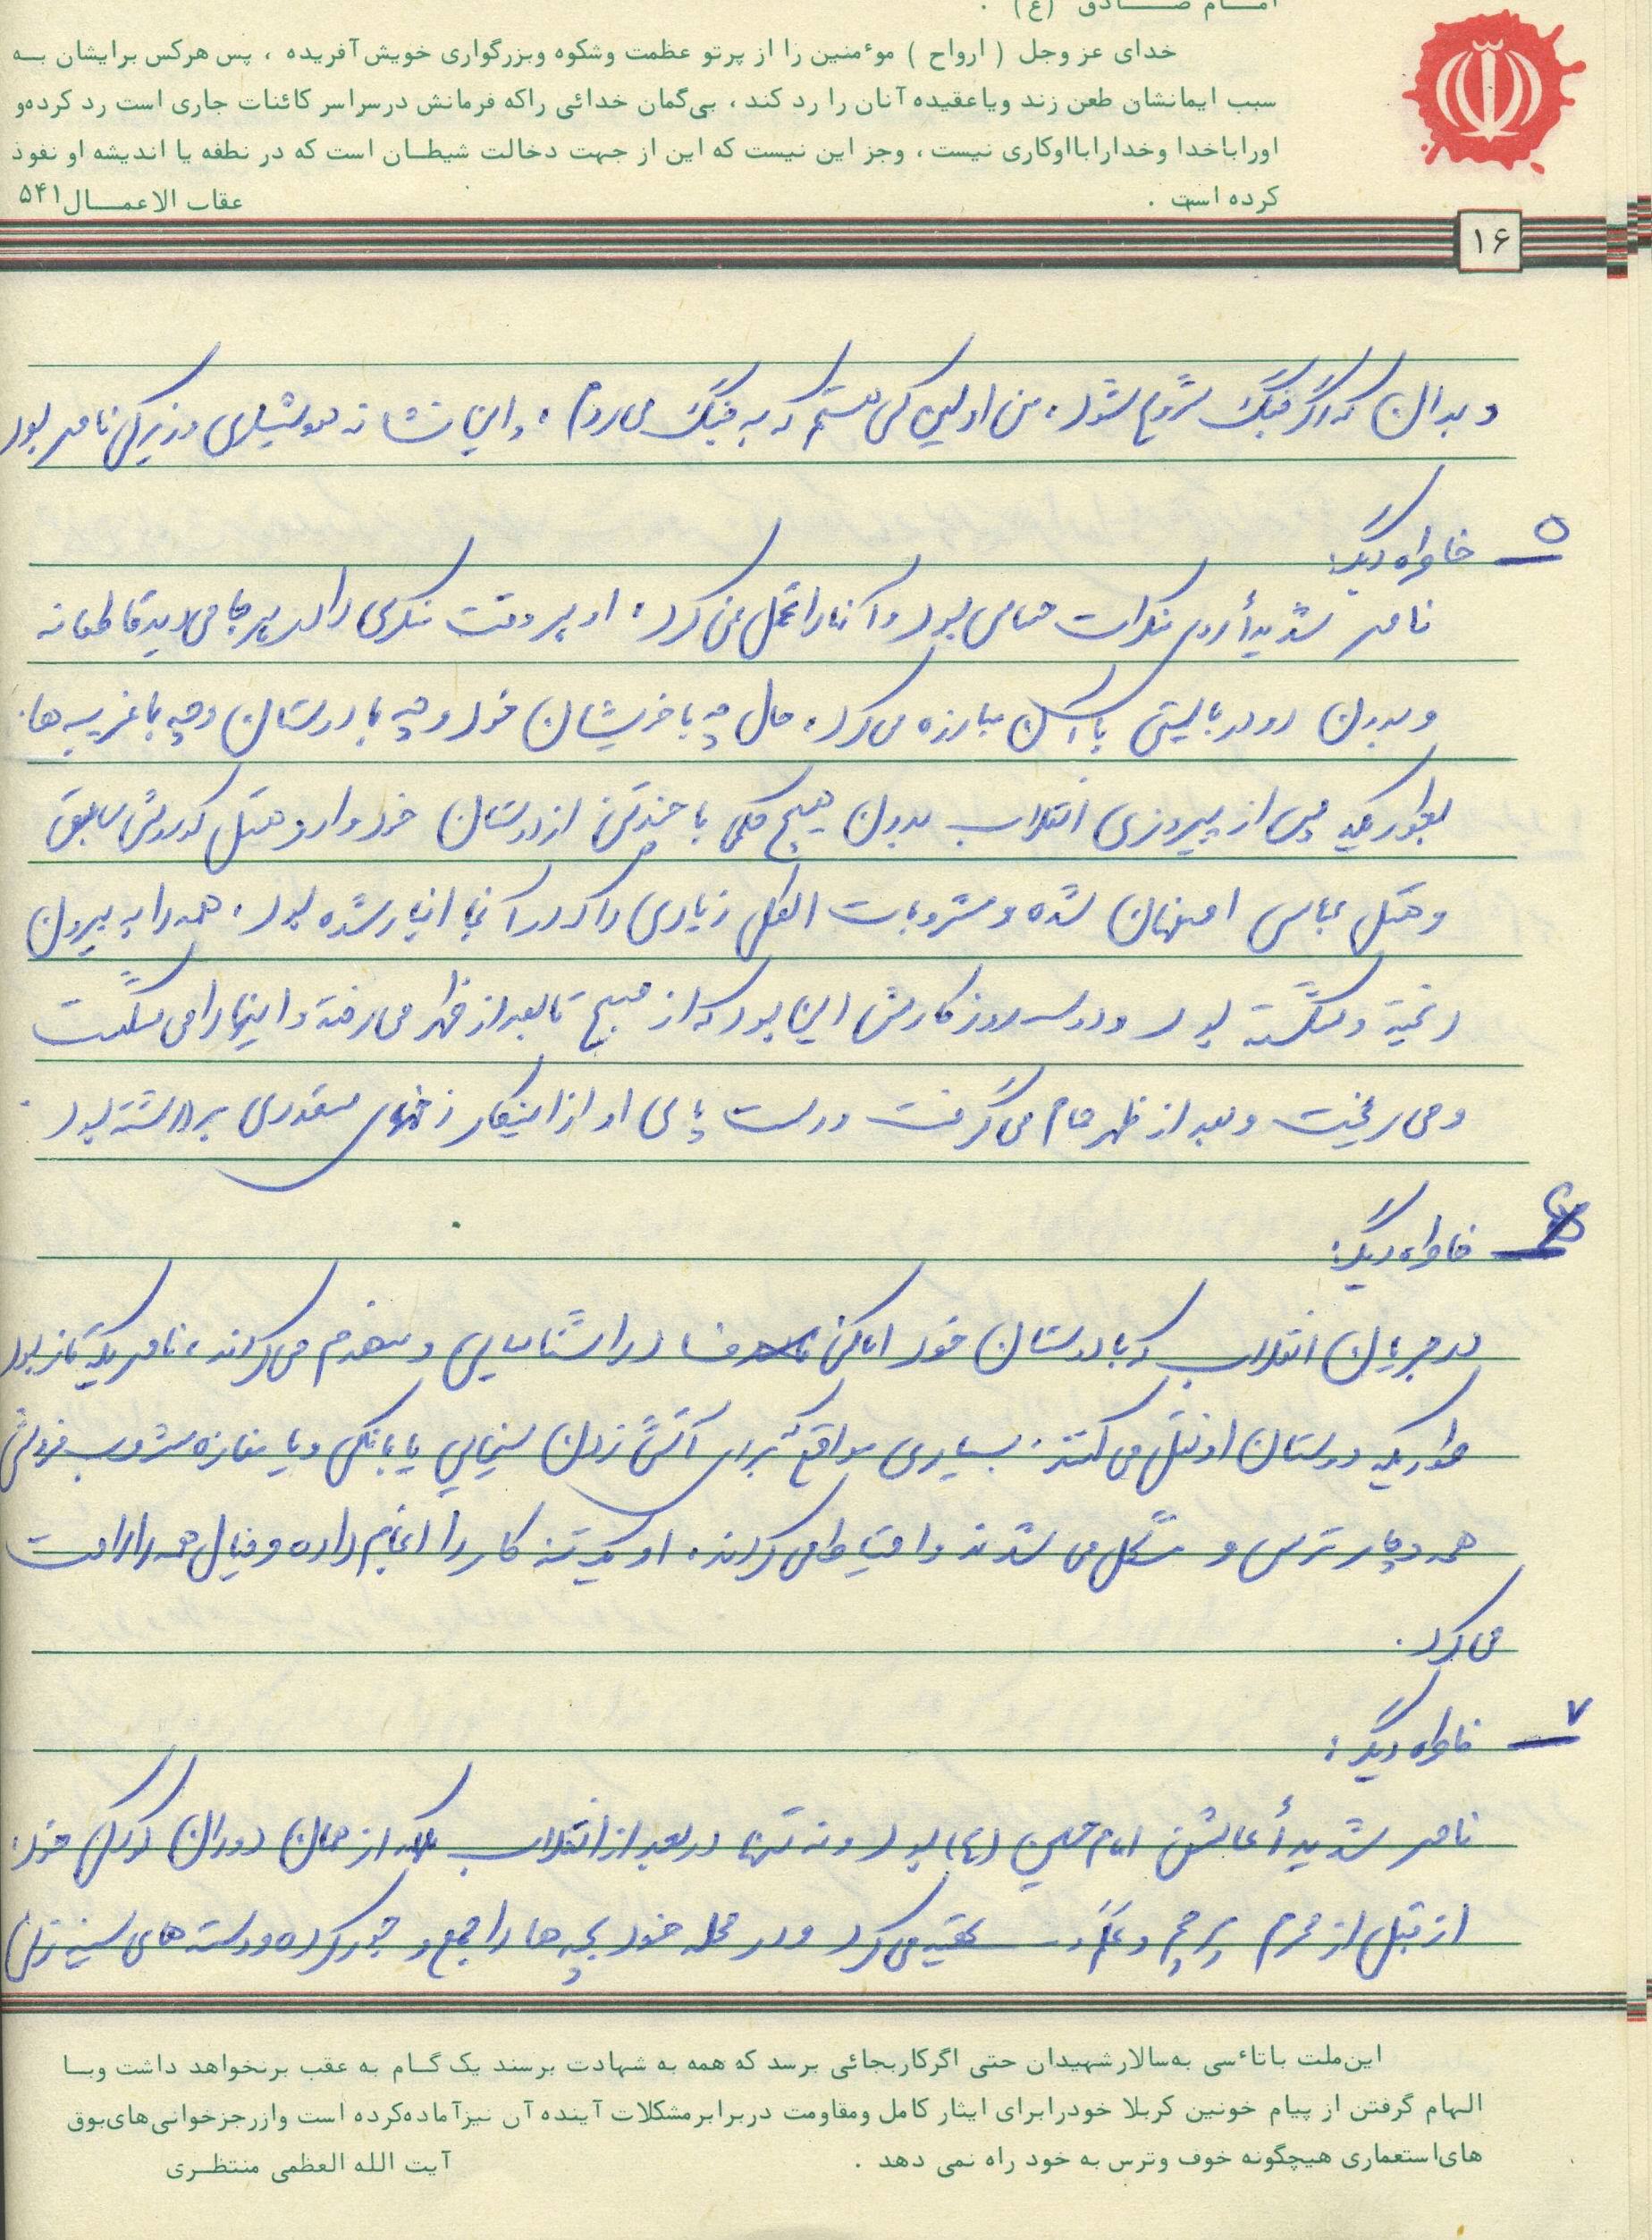 امـــام صـــــادق (ع) .
خدای عز وجل ( ارواح ) موٴمنین را از پرتو عظمت وشکوه وبزرگواری خویش آفریده ، پس هرکس برایشان بــه
سبب ایمانشان طعن زند ویاعقیده آنان را رد کند ، بی‌گمان خدائی راکه فرمانش درسراسر کائنات جاری است رد کرده‌و
اوراباخدا وخداراباا‌وکاری نیست ، وجز این نیست که این از جهت دخالت شیطــان است که در نطفه یا اندیشه او نفوذ
کرده است .
عقاب الاعمـــال۵۴۱
۱۶
و بدان که اگر جنگ شروع شود، من اولین کسی هستم که به جنگ می‌روم، و این نشانه هوشیاری و زیرکی ناصر بود
۵ – خاطره دیگر:
ناصر شدیداً روی منکرات حساس بود و آنها را تحمل نمی‌کرد، او هر وقت منکری را در هر جا می‌دید قاطعانه
و بدون رودربایستی با آن مبارزه می‌کرد، حال چه با خویشان خود و چه با دوستان و چه با غریبه‌ها.
بطوریکه پس از پیروزی انقلاب بدون هیچ حکمی با چند تن از دوستان خود وارد هتل کوروش سابق
و هتل عباسی اصفهان شده و مشروبات الکلی زیادی را که در آنجا انبار شده بود، همه را به بیرون
ریخته و شکسته بود و دو سه روز کارش این بود که از صبح تا بعد از ظهر می‌رفته و اینها را می‌شکست
و می‌ریخت و بعد از ظهر حمام می‌گرفت و دست پای او از اینکار زخمهای متعددی برداشته بود.
۶ – خاطره دیگر:
در جریان انقلاب که با دوستان خود اماکن فساد را شناسایی و منهدم می‌کردند، ناصر یکه‌تاز بود
طوریکه دوستان او نقل می‌کنند: بسیاری مواقع که برای آتش زدن سینمایی یا بانکی و یا مغازه مشروب فروشی
همه دچار ترس و مشکل می‌شدند و احتیاط می‌کردند، او یک تنه کار را انجام داده و خیال همه را راحت
می‌کرد.
۷ – خاطره دیگر:
ناصر شدیداً عاشق امام حسین (ع) بود و نه تنها در بعد از انقلاب بلکه از همان دوران کودکی خود،
از قبل از محرم پرچم و علم و تهیه می‌کرد و در محله خود بچه‌ها را جمع و جور کرده و دسته‌های سینه زنی
این‌ملت باتاٴسی به‌سالارشهیدان حتی اگرکاربجائی برسد که همه به شهادت برسند یک گــام به عقب برنخواهد داشت وبــا
الـهام گرفتن از پیام خونین کربلا خودرابرای ایثار کامل ومقاومت دربرابرمشکلات آینده آن نیزآماده‌کرده است وازرجزخوانی‌های‌بوق
های‌استعماری هیچگونه خوف وترس به خود راه نمی دهد .
آیت الله العظمی منتظـری